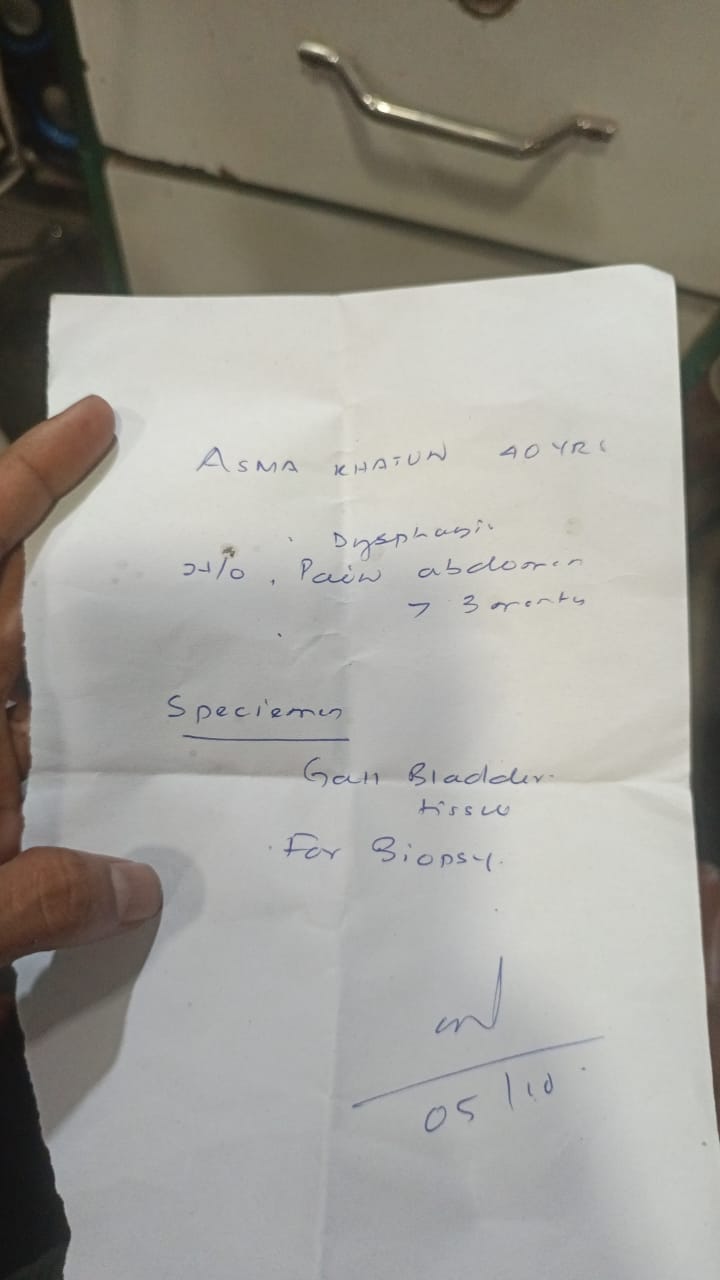 ASMA KHATUN 40 YRS
Dysphasi
H/O . Pain abdomen
> 3 months
Speciemen
Gall Bladder
tissue
For Biopsy.
05/10